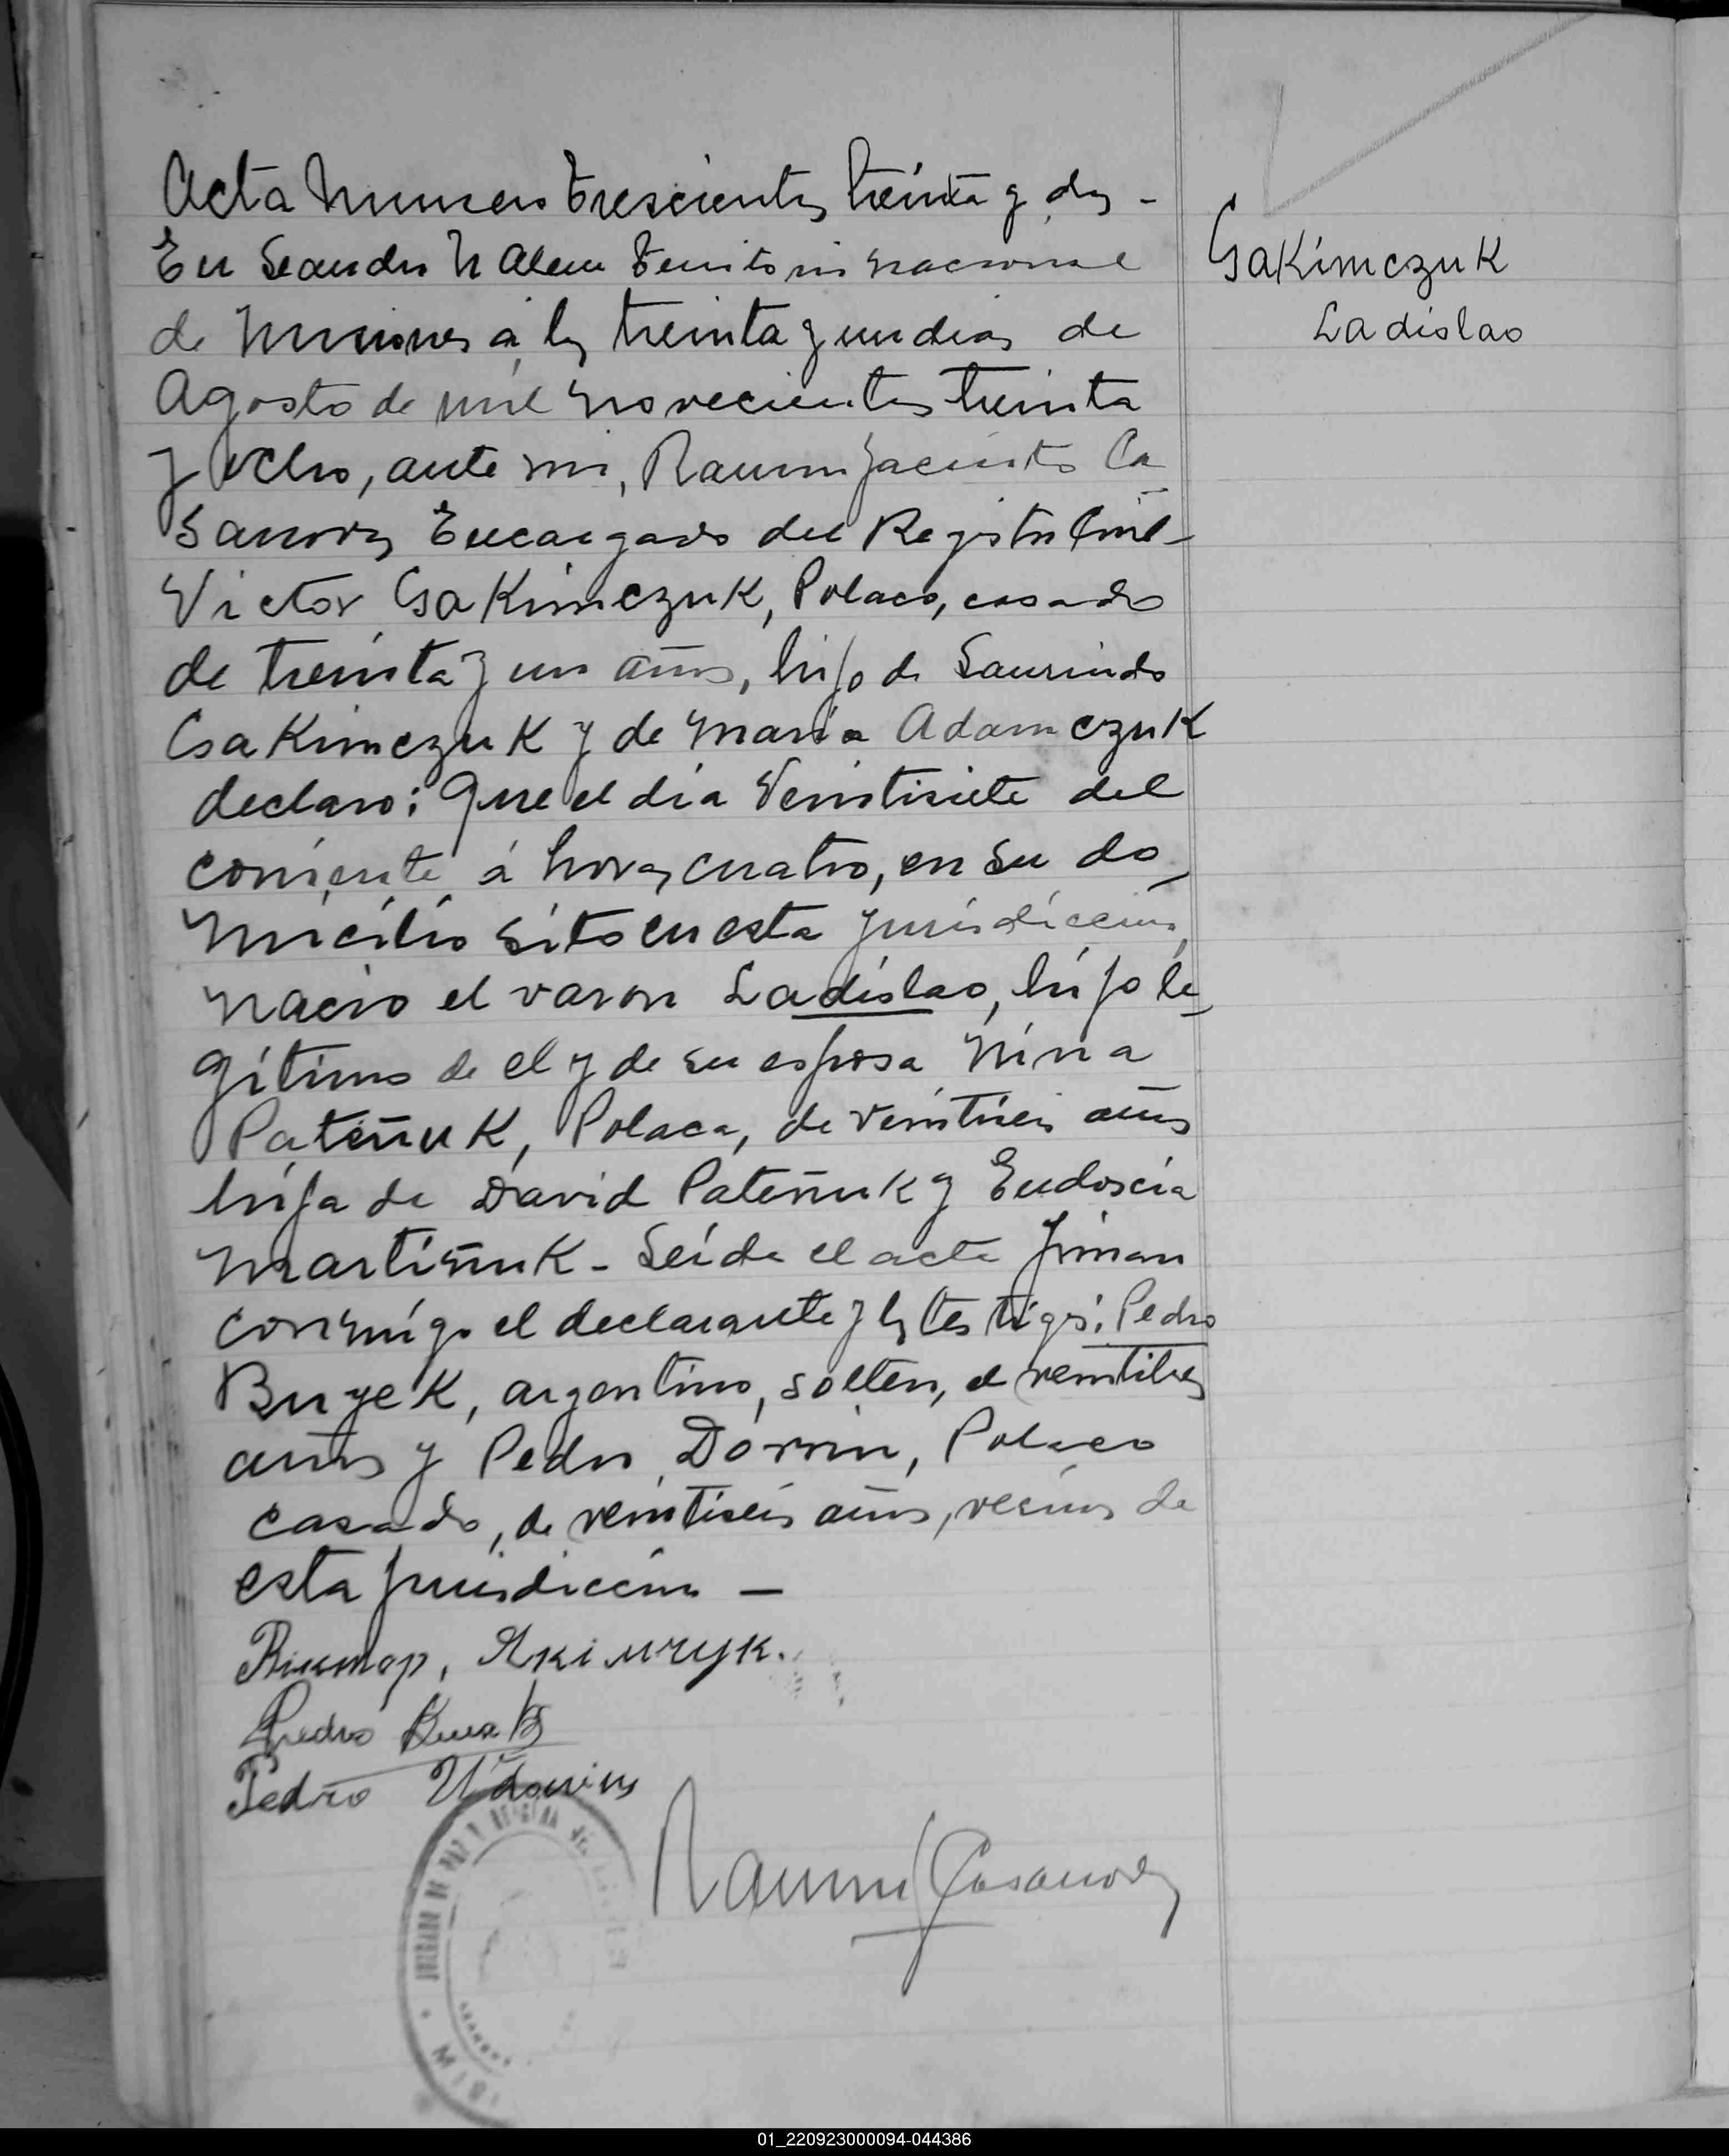 Acta Numero trescientos treinta y dos -
En Leandro N Alem Territorio nacional
de Misiones á los treinta y un dias de
Agosto de mil novecientos treinta
y ocho, ante mi, Ramon Jacinto Ca
sanova Encargado del Registro Civil -
Victor CsaKimczuK, Polaco, casado
de treinta y un años, hijo de Laurindo
CsaKimczuK y de Maria AdamczuK
declaro: Que el dia Veintisiete del
corriente á horas cuatro, en su do_
micilio sito en esta jurisdiccion,
nacio el varon Ladislao, hijo le_
gitimo de el y de su esposa Nina
PateñuK, Polaca, de veintiseis años
hija de David PateñuK y Eudoscia
MartiñuK - Leida el acta firman
conmigo el declarante y los testigos: Pedro
BuyeK, argentino, soltero, de veintitres
años y Pedro Dowin, Polaco
casado, de veintiseis años, vecinos de
esta jurisdiccion —
Виктор, Якімчук.
Pedro
Pedro Udowin
Ramon J Casanova
CsaKimczuK
Ladislao
JUZGADO DE PAZ Y REGISTRO
MIS
01_220923000094-044386